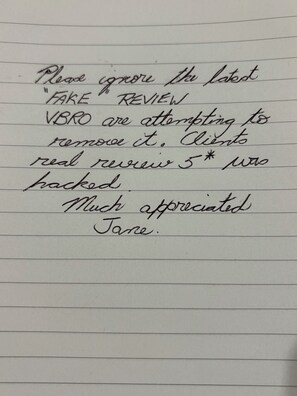 Please ignore the latest
"FAKE" REVIEW
VBRO are attempting to
remove it. Clients
real review 5* was
hacked.
Much appreciated
Jane.